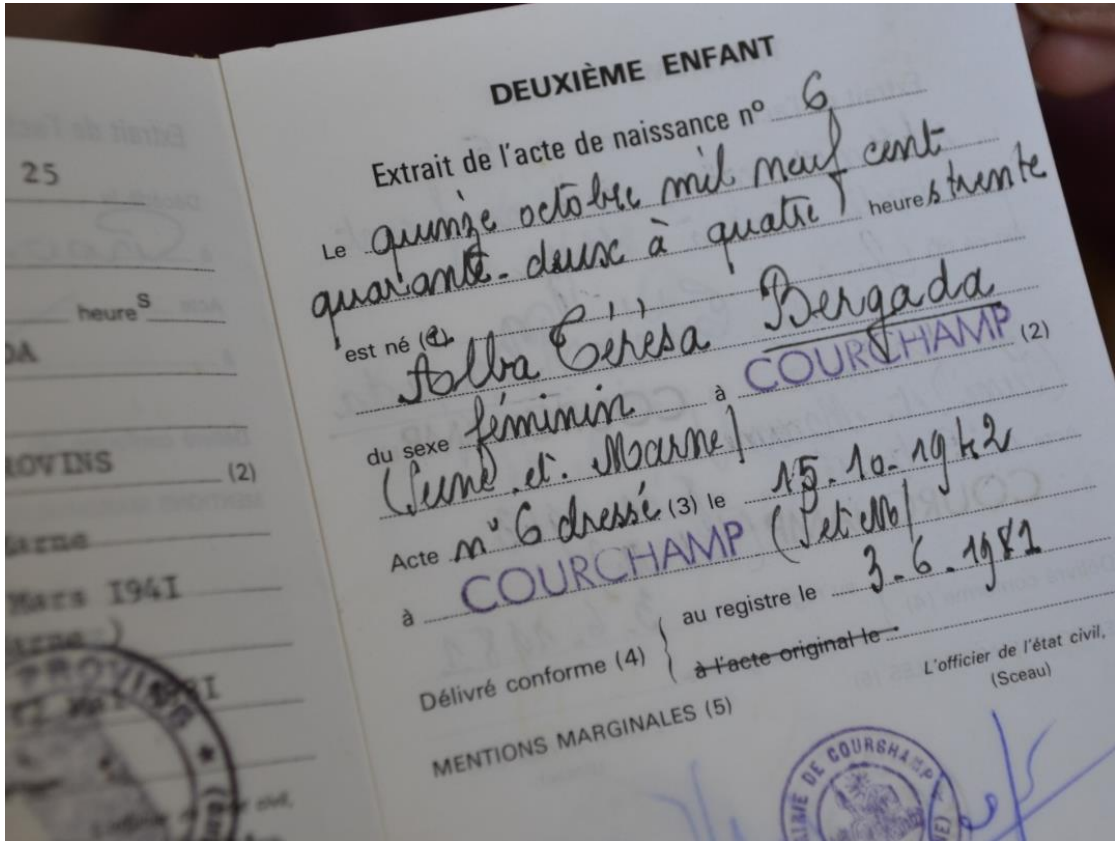 25
heures
DA
ROVINS (2)
Marne
Mars I94I
PROVINS
DEUXIÈME ENFANT
Extrait de l'acte de naissance nº 6
Le quinze octobre mil neuf cent
quarante-deux à quatre heures trente
est né (1)
Alba Térèsa Bergada
du sexe féminin à COURCHAMP (2)
(Seine et Marne)
Acte nº 6 dressé (3) le 15.10.1942
à COURCHAMP (Set M)
Délivré conforme (4)
au registre le 3.6.1981
à l'acte original le
L'officier de l'état civil,
(Sceau)
MENTIONS MARGINALES (5)
MAIRIE DE COURCHAMP